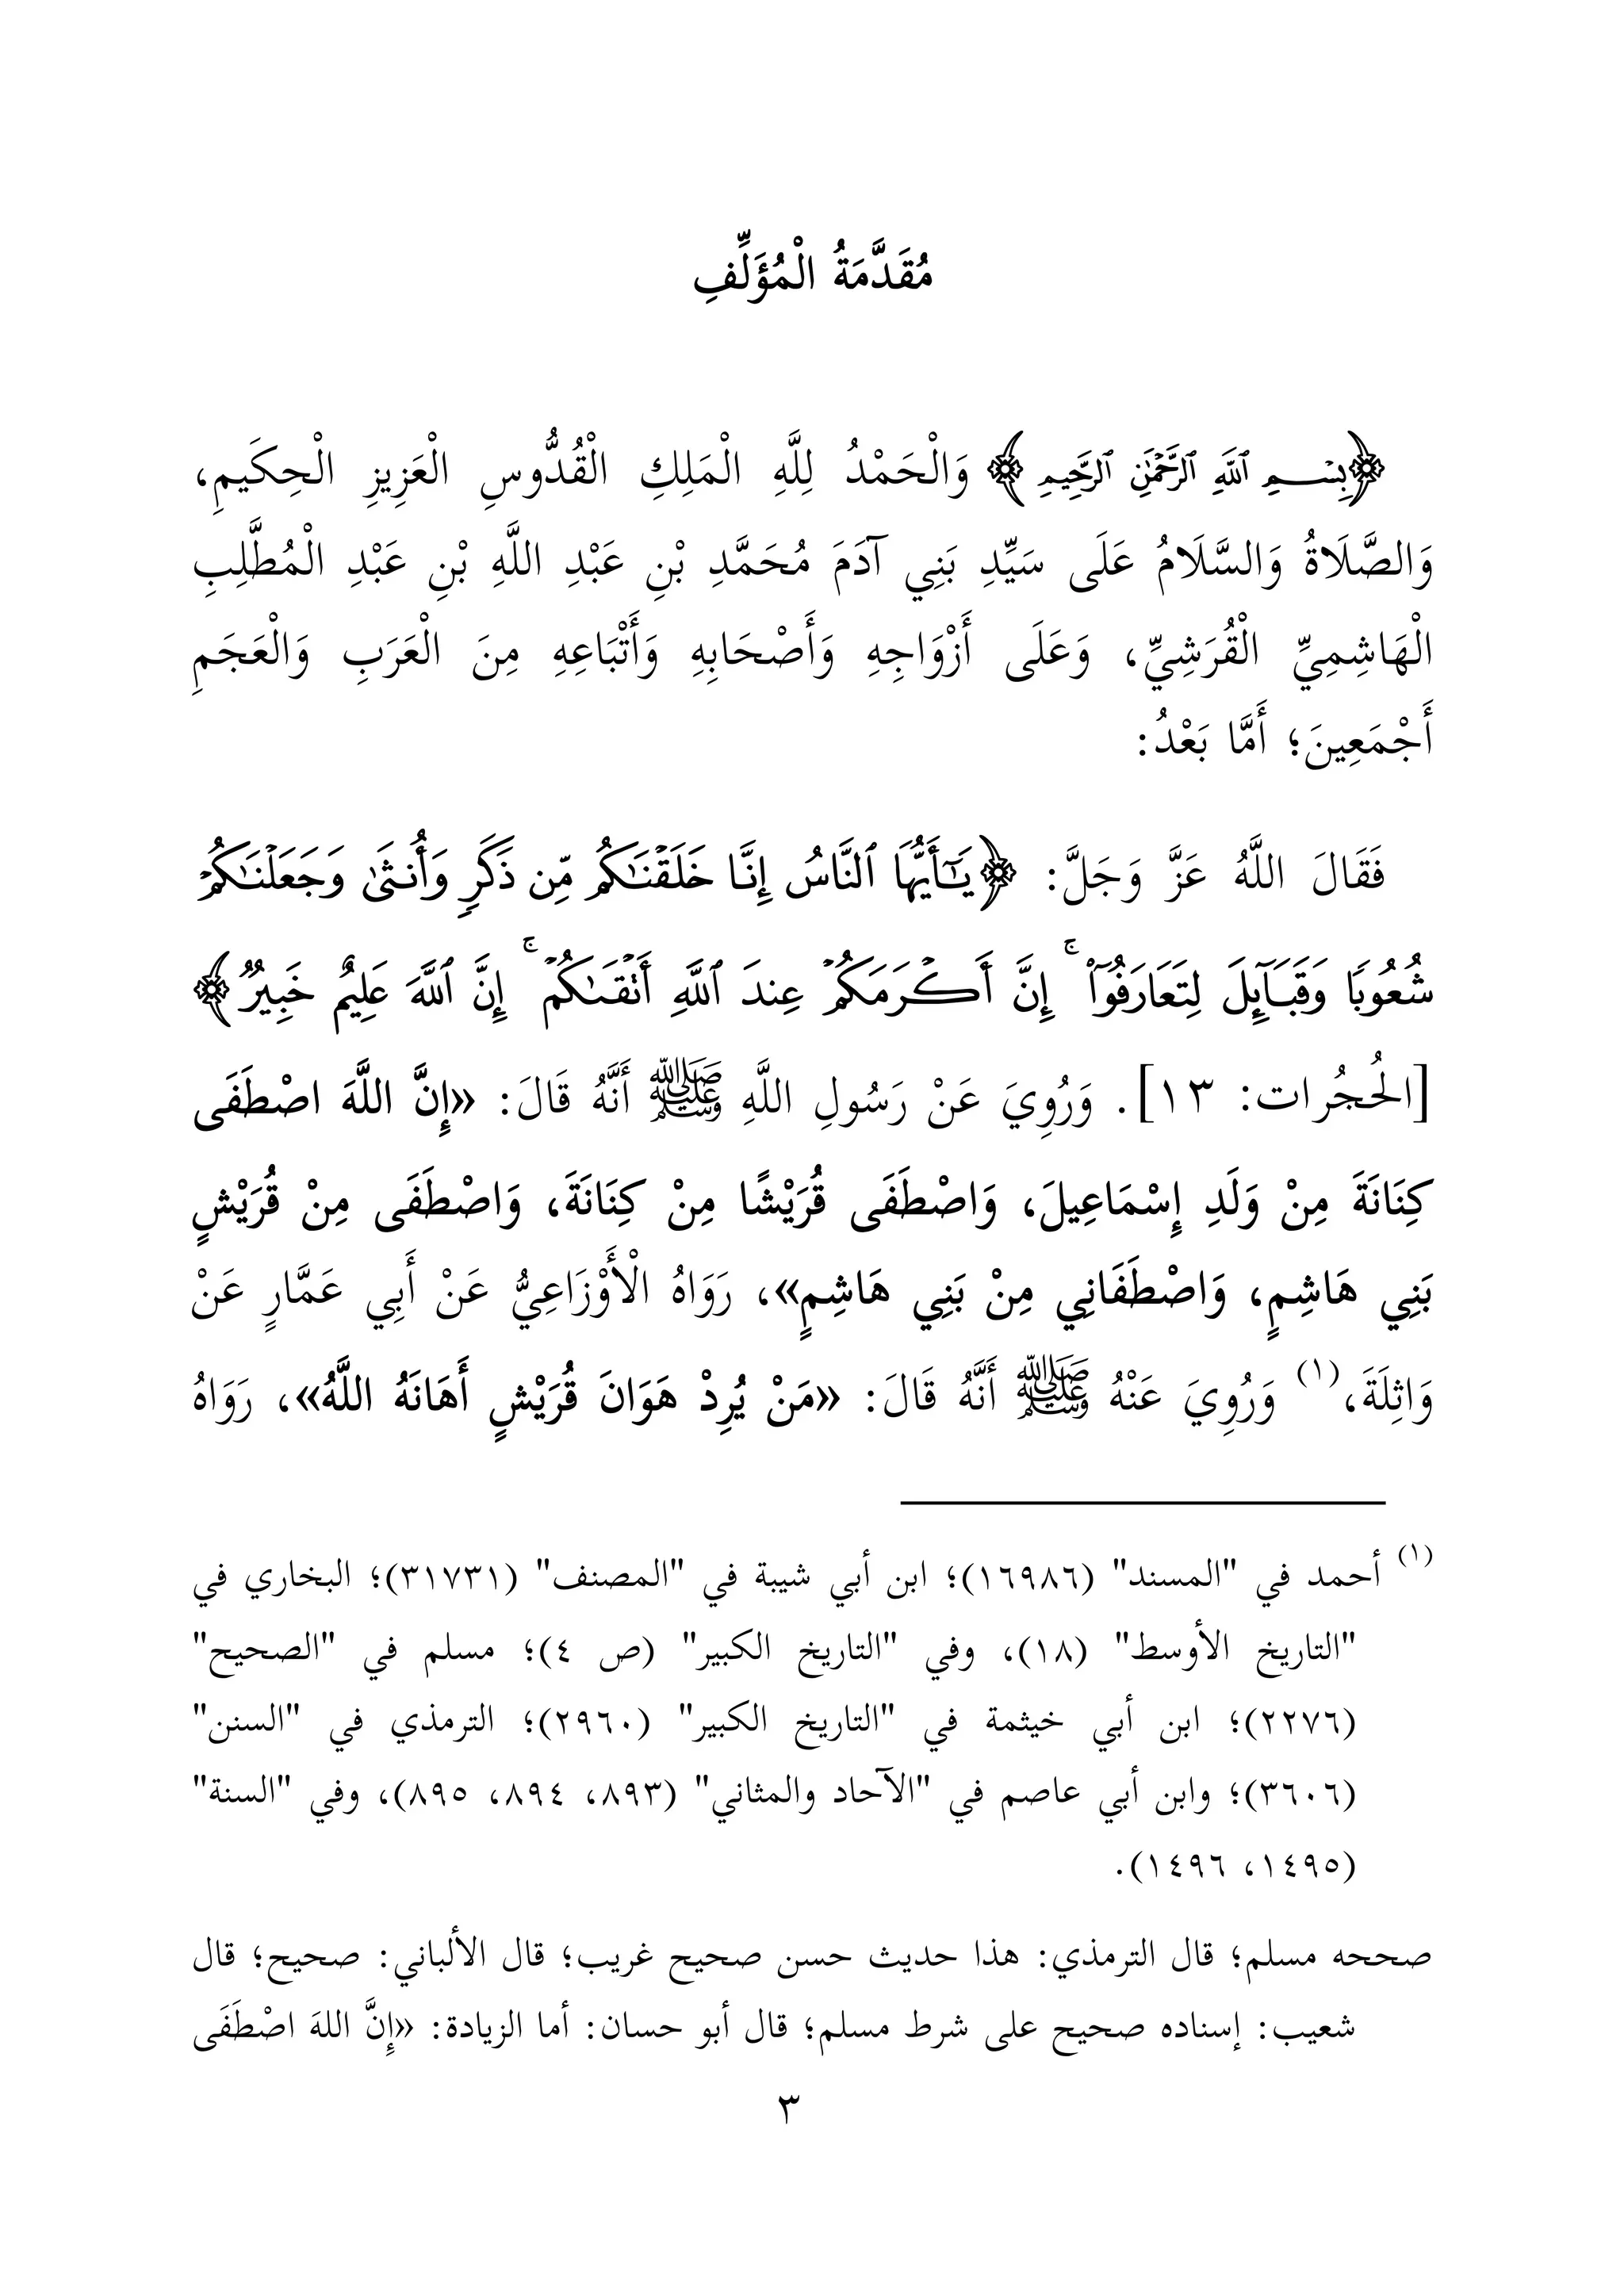 مُقَدَّمَةُ الْمُؤَلِّفِ
﴿بِسْمِ ٱللَّهِ ٱلرَّحْمَٰنِ ٱلرَّحِيمِ﴾ وَالْحَمْدُ لِلَّهِ الْمَلِكِ الْقُدُّوسِ الْعَزِيزِ الْحِكَيمِ،
وَالصَّلَاةُ وَالسَّلَامُ عَلَى سَيِّدِ بَنِي آدَمَ مُحَمَّدِ بْنِ عَبْدِ اللَّهِ بْنِ عَبْدِ الْمُطَّلِبِ
الْهَاشِمِيِّ الْقُرَشِيِّ، وَعَلَى أَزْوَاجِهِ وَأَصْحَابِهِ وَأَتْبَاعِهِ مِنَ الْعَرَبِ وَالْعَجَمِ
أَجْمَعِينَ؛ أَمَّا بَعْدُ:
فَقَالَ اللَّهُ عَزَّ وَجَلَّ: ﴿يَـٰٓأَيُّهَا ٱلنَّاسُ إِنَّا خَلَقْنَـٰكُم مِّن ذَكَرٍ وَأُنثَىٰ وَجَعَلْنَـٰكُمْ
شُعُوبًا وَقَبَآئِلَ لِتَعَارَفُوٓا۟ ۚ إِنَّ أَكْرَمَكُمْ عِندَ ٱللَّهِ أَتْقَىٰكُمْ ۚ إِنَّ ٱللَّهَ عَلِيمٌ خَبِيرٌ﴾
[الحُجُرات: ١٣]. وَرُوِيَ عَنْ رَسُولِ اللَّهِ ﷺ أَنَّهُ قَالَ: «إِنَّ اللَّهَ اصْطَفَى
كِنَانَةَ مِنْ وَلَدِ إِسْمَاعِيلَ، وَاصْطَفَى قُرَيْشًا مِنْ كِنَانَةَ، وَاصْطَفَى مِنْ قُرَيْشٍ
بَنِي هَاشِمٍ، وَاصْطَفَانِي مِنْ بَنِي هَاشِمٍ»، رَوَاهُ الْأَوْزَاعِيُّ عَنْ أَبِي عَمَّارٍ عَنْ
وَاثِلَةَ،(١) وَرُوِيَ عَنْهُ ﷺ أَنَّهُ قَالَ: «مَنْ يُرِدْ هَوَانَ قُرَيْشٍ أَهَانَهُ اللَّهُ»، رَوَاهُ
(١) أحمد في "المسند" (١٦٩٨٦)؛ ابن أبي شيبة في "المصنف" (٣١٧٣١)؛ البخاري في
"التاريخ الأوسط" (١٨)، وفي "التاريخ الكبير" (ص ٤)؛ مسلم في "الصحيح"
(٢٢٧٦)؛ ابن أبي خيثمة في "التاريخ الكبير" (٢٩٦٠)؛ الترمذي في "السنن"
(٣٦٠٦)؛ وابن أبي عاصم في "الآحاد والمثاني" (٨٩٣، ٨٩٤، ٨٩٥)، وفي "السنة"
(١٤٩٥، ١٤٩٦).
صححه مسلم؛ قال الترمذي: هذا حديث حسن صحيح غريب؛ قال الألباني: صحيح؛ قال
شعيب: إسناده صحيح على شرط مسلم؛ قال أبو حسان: أما الزيادة: «إِنَّ اللهَ اصْطَفَى
٣